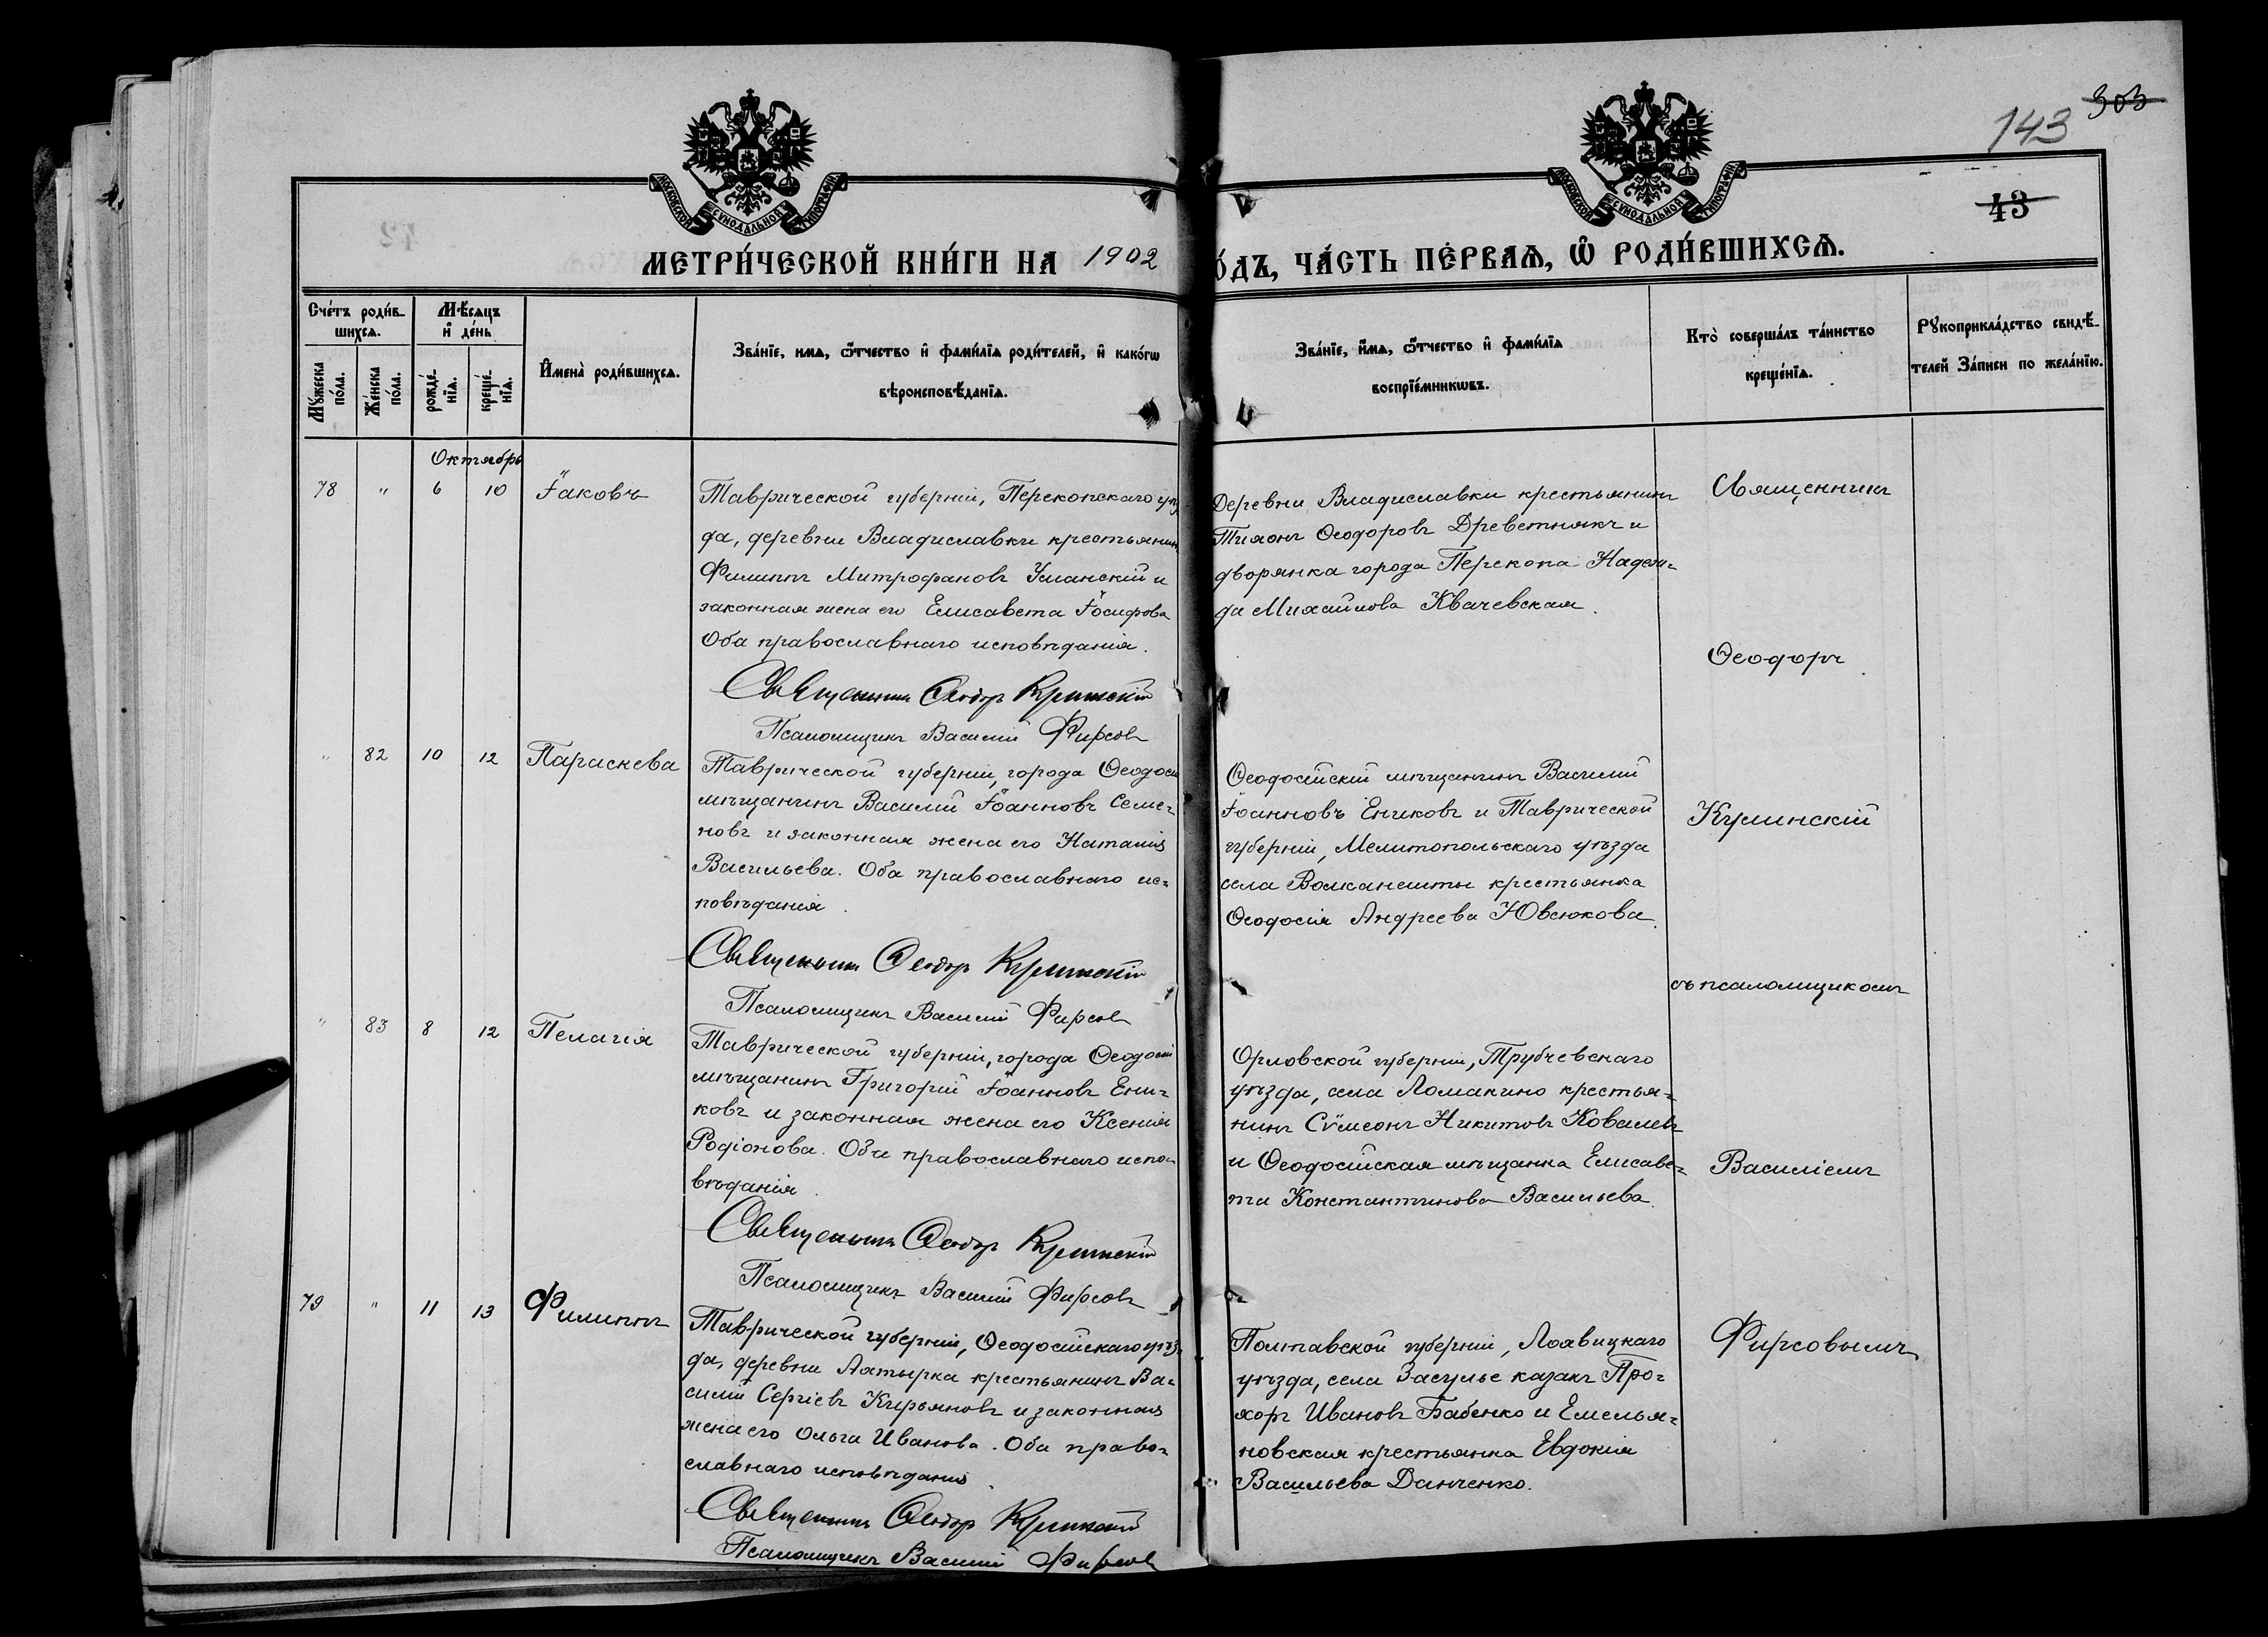 303
143
43
МОСКОВСКОЙ СѴНОДАЛЬНОЙ ТИПОГРАФІИ
МОСКОВСКОЙ СѴНОДАЛЬНОЙ ТИПОГРАФІИ
МЕТРИ́ЧЕСКОЙ КНИ́ГИ НА 1902
О́ДЪ, ЧА́СТЬ ПЕ́РВАѦ, Ѿ РОДИ́ВШИХСѦ.
Сче́тъ роди́в-
шихсѧ.
Мꙋ́жеска по́ла.
Же́нска по́ла.
Мѣ́сѧцъ
и҆ де́нь
рожде́-
нїѧ.
креще́-
нїѧ.
И҆мена̀ роди́вшихсѧ.
Зва́нїе, имѧ, ѻ҆́тчество и҆ фами́лїѧ роди́телей, и҆ како́гѡ
вѣроисповѣ́данїѧ.
Зва́нїе, и҆́мѧ, ѻ҆́тчество и҆ фами́лїѧ
воспрїе́мникѡвъ.
Кто̀ соверша́лъ та́инство
креще́нїѧ.
Рꙋкоприкла́дство свидѣ́-
телей За́писи по жела́нїю.
Октябрь
78 " 6 10 Іаковъ
Таврической губерніи, Перекопскаго уѣз
да, деревни Владиславки крестьянинъ
Филиппъ Митрофановъ Уманскій и
законная жена его Елисавета Іосифова
Оба православнаго исповѣданія.
Священникъ Ѳеодоръ Кушинскій
Псаломщикъ Василій Фирсовъ
Деревни Владиславки крестьянинъ
Тихонъ Ѳеодоровъ Древетнякъ и
дворянка города Перекопа Надеж-
да Михайлова Квачевская.
Священникъ
Ѳеодоръ
" 82 10 12 Параскева
Таврической губерніи, города Ѳеодосіи
мѣщанинъ Василій Іоанновъ Семе-
новъ и законная жена его Наталія
Васильева. Оба православнаго ис-
повѣданія.
Священникъ Ѳеодоръ Кушинскій
Псаломщикъ Василій Фирсовъ
Ѳеодосійскій мѣщанинъ Василий
Іоанновъ Ениковъ и Таврической
губерніи, Мелитопольскаго уѣзда
села Волканешты крестьянка
Ѳеодосія Андреева Ювсюкова.
Кушинскій
съ псаломщикомъ
" 83 8 12 Пелагія
Таврической губерніи, города Ѳеодосіи
мѣщанинъ Григорій Іоанновъ Ени-
ковъ и законная жена его Ксенія
Родіонова. Оба православнаго испо-
вѣданія.
Священникъ Ѳеодоръ Кушинскій
Псаломщикъ Василій Фирсовъ
Орловской губерніи, Трубчевскаго
уѣзда, села Ломакино крестья-
нинъ Сѵмеонъ Никитовъ Ковалевъ
и Ѳеодосійская мѣщанка Елисаве-
та Константинова Васильева.
Василіемъ
79 " 11 13 Филиппъ
Таврической губерніи, Ѳеодосійскаго уѣз-
да, деревни Аятырка крестьянинъ Ва-
силій Сергіевъ Кирьяновъ и законная
жена его Ольга Иванова. Оба право-
славнаго исповѣданія.
Священникъ Ѳеодоръ Кушинскій
Псаломщикъ Василій Фирсовъ
Полтавской губерніи, Лохвицкаго
уѣзда, села Засулье казакъ Про-
хоръ Ивановъ Бабенко и Емелья-
новская крестьянка Евдокія
Васильева Данченко.
Фирсовымъ